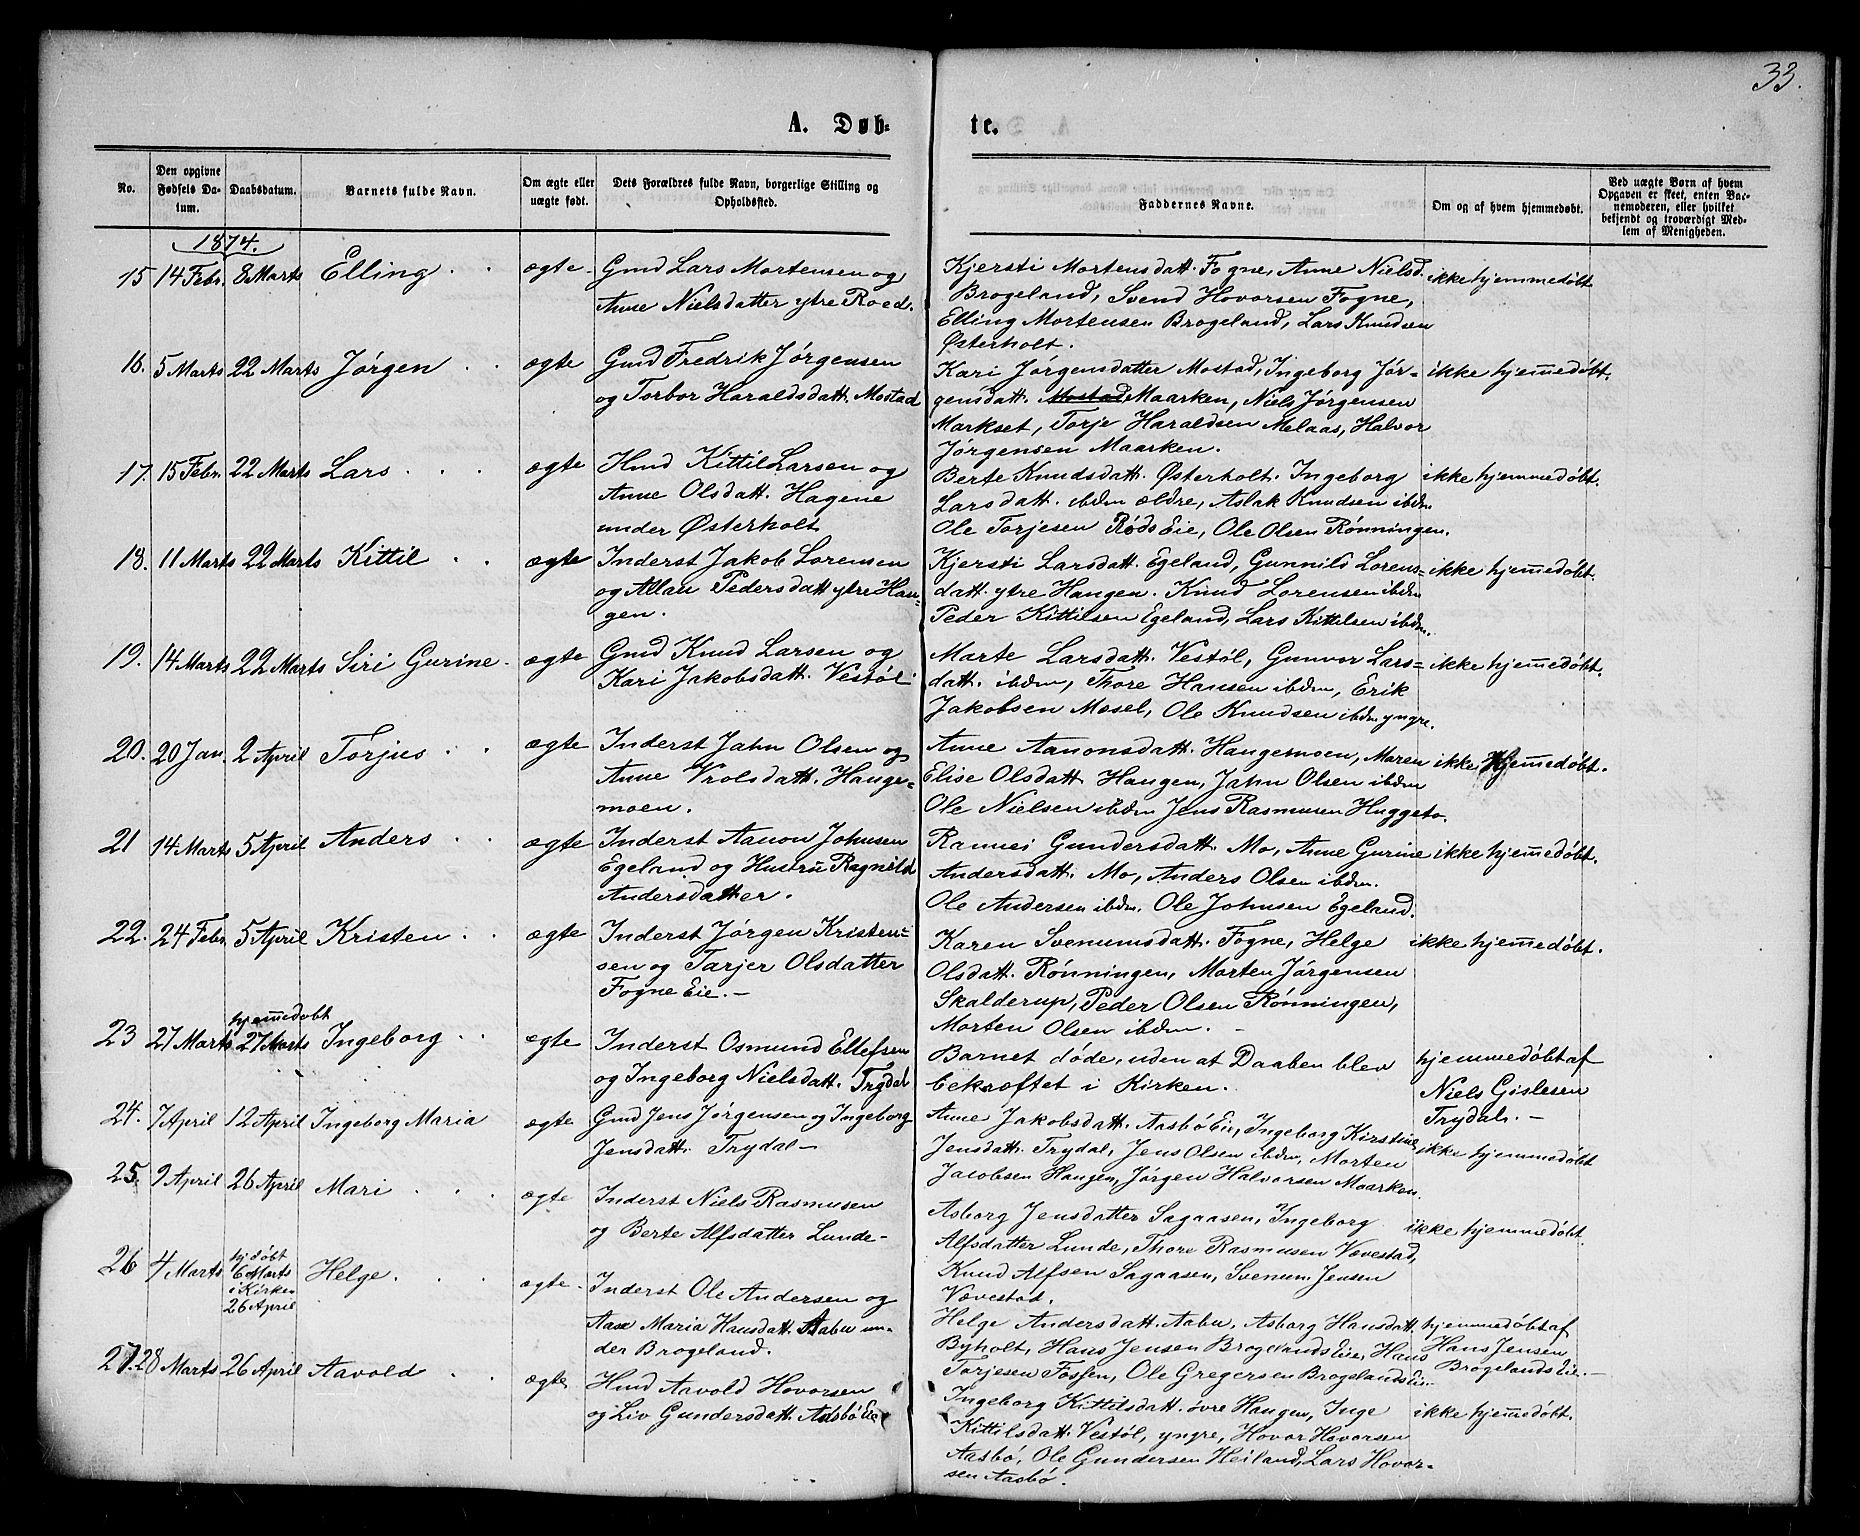 33.
A. Døb-
te.
No.
Den opgivne Fødsels Da-tum.
Daabsdatum.
Barnets fulde Navn.
Om ægte eller uægte født.
Dets Forældres fulde Navn, borgerlige Stilling og Opholdsted.
Faddernes Navne.
Om og af hvem hjemmedøbt.
Ved uægte Børn af hvem Opgaven er skeet, enten Bar-nemoderen, eller hvilket bekjendt og troværdigt Med-lem af Menigheden.
1874.
15 14 Febr. 8 Marts Elling ægte Gmd Lars Mortensen og
Anne Nielsdatter ytre Roed.
Kjersti Mortensdatt. Fogne, Anne Nielsd.
Brogeland, Svend Hovorsen Fogne,
Elling Mortensen Brogeland, Lars Knudsen
Østerholt.
ikke hjemmedøbt
16. 5 Marts 22 Marts Jørgen ægte Gmd Fredrik Jørgensen
og Torbor Haraldsdatt. Mostad
Kari Jørgensdatter Mostad, Ingeborg Jør-
gensdatt. Mostad Maarken, Niels Jørgensen
Markset, Torje Haraldsen Melaas, Halvor
Jørgensen Maarken.
ikke hjemmedøbt.
17. 15 Febr. 22 Marts Lars ægte Hmd Kittil Larsen og
Anne Olsdatt. Hagene
under Østerholt
Berte Knudsdatt. Østerholt. Ingeborg
Larsdatt. ibdm ældre, Aslak Knudsen ibdm
Ole Torjesen Røds Eie, Ole Olsen Rønningen.
ikke hjemmedøbt.
18. 11 Marts 22 Marts Kittil ægte Inderst Jakob Lorensen
og Allau Pedersdatt ytre Hau-
gen.
Kjersti Larsdatt. Egeland, Gunnild Lorens-
datt. ytre Haugen. Knud Lorensen ibdm
Peder Kittilsen Egeland, Lars Kittilsen ibdm.
ikke hjemmedøbt.
19. 14 Marts 22 Marts Siri Gurine ægte Gmd Knud Larsen og
Kari Jakobsdatt. Vestøl
Marte Larsdatt. Vestøl, Gunvor Lars-
datt. ibdm, Thore Hansen ibdm, Erik
Jakobsen Mesel, Ole Knudsen ibdm yngre.
ikke hjemmedøbt.
20. 20 Jan. 2 April Torjus ægte Inderst Jahn Olsen og
Anne Vrolsdatt. Hauge-
moen.
Anne Aanonsdatt. Haugemoen, Maren
Elise Olsdatt Haugen, Jahn Olsen ibdm
Ole Nielsen ibdm Jens Rasmusen Huggeto.
ikke Hjemmedøbt.
21 14 Marts 5 April Anders ægte Inderst Aanon Johnsen
Egeland og Hustru Ragnild
Andersdatter.
Ramvei Gundersdatt. Mo, Anne Gurine
Andersdatt. Mo, Anders Olsen ibdm.
Ole Andersen ibdm. Ole Johnsen Egeland.
ikke hjemmedøbt.
22. 24 Febr. 5 April Kristen ægte Inderst Jørgen Kristen-
sen og Tarjer Olsdatter
Fogne Eie.
Karen Svenumsdatt. Fogne, Helge
Olsdatt. Rønningen, Morten Jørgensen
Skalderup, Peder Olsen Rønningen,
Morten Olsen ibdm.
ikke hjemmedøbt.
23 27 Marts hjemmedøbt 27 Marts Ingeborg ægte Inderst Osmund Ellefsen
og Ingeborg Nielsdatt. Trydal
Barnet døde, uden at Daaben blev
bekræftet i Kirken.
hjemmedøbt af
Niels Gislesen
Trydal.
24. 7 April 12 April Ingeborg Maria ægte Gmd Jens Jørgensen og Ingeborg
Jensdatt. Trydal
Anne Jakobsdatt. Aasbø Eie, Ingeborg Kirstine
Jensdatt. Trydal, Jens Olsen ibdm, Morten
Jacobsen Haugen, Jørgen Halvorsen Maarken.
ikke hjemmedøbt
25. 9 April 26 April Mari ægte Inderst Niels Rasmusen
og Berte Alfsdatter Lunde
Asborg Jensdatter Sagaasen, Ingeborg
Alfsdatter Lunde, Thore Rasmusen Vævestad,
Knud Alfsen Sagaasen, Svenum Jensen
Vævestad.
ikke hjemmedøbt.
26 4 Marts hjdøbt 6 Marts i Kirken 26 April Helge ægte Inderst Ole Andersen og
Aase Maria Hansdatt. Aabu un-
der Brogeland.
Helge Andersdatt. Aabu, Asborg Hansdatt.
Byholt, Hans Jensen Brogelands Eie, Hans
Torjesen Fossen, Ole Gregersen Brogelands Eie.
hjemmedøbt af
Hans Jensen
Brogelands Eie.
27. 28 Marts 26 April Aavold ægte Hmd Aavold Hovorsen
og Liv Gundersdatt. Aasbø Eie
Ingeborg Kittilsdatt. øvre Haugen, Inge
Kittilsdatt. Vestøl, yngre, Hovor Hovorsen
Aasbø, Ole Gundersen Heiland, Lars Hovor-
sen Aasbø.
ikke hjemmedøbt.